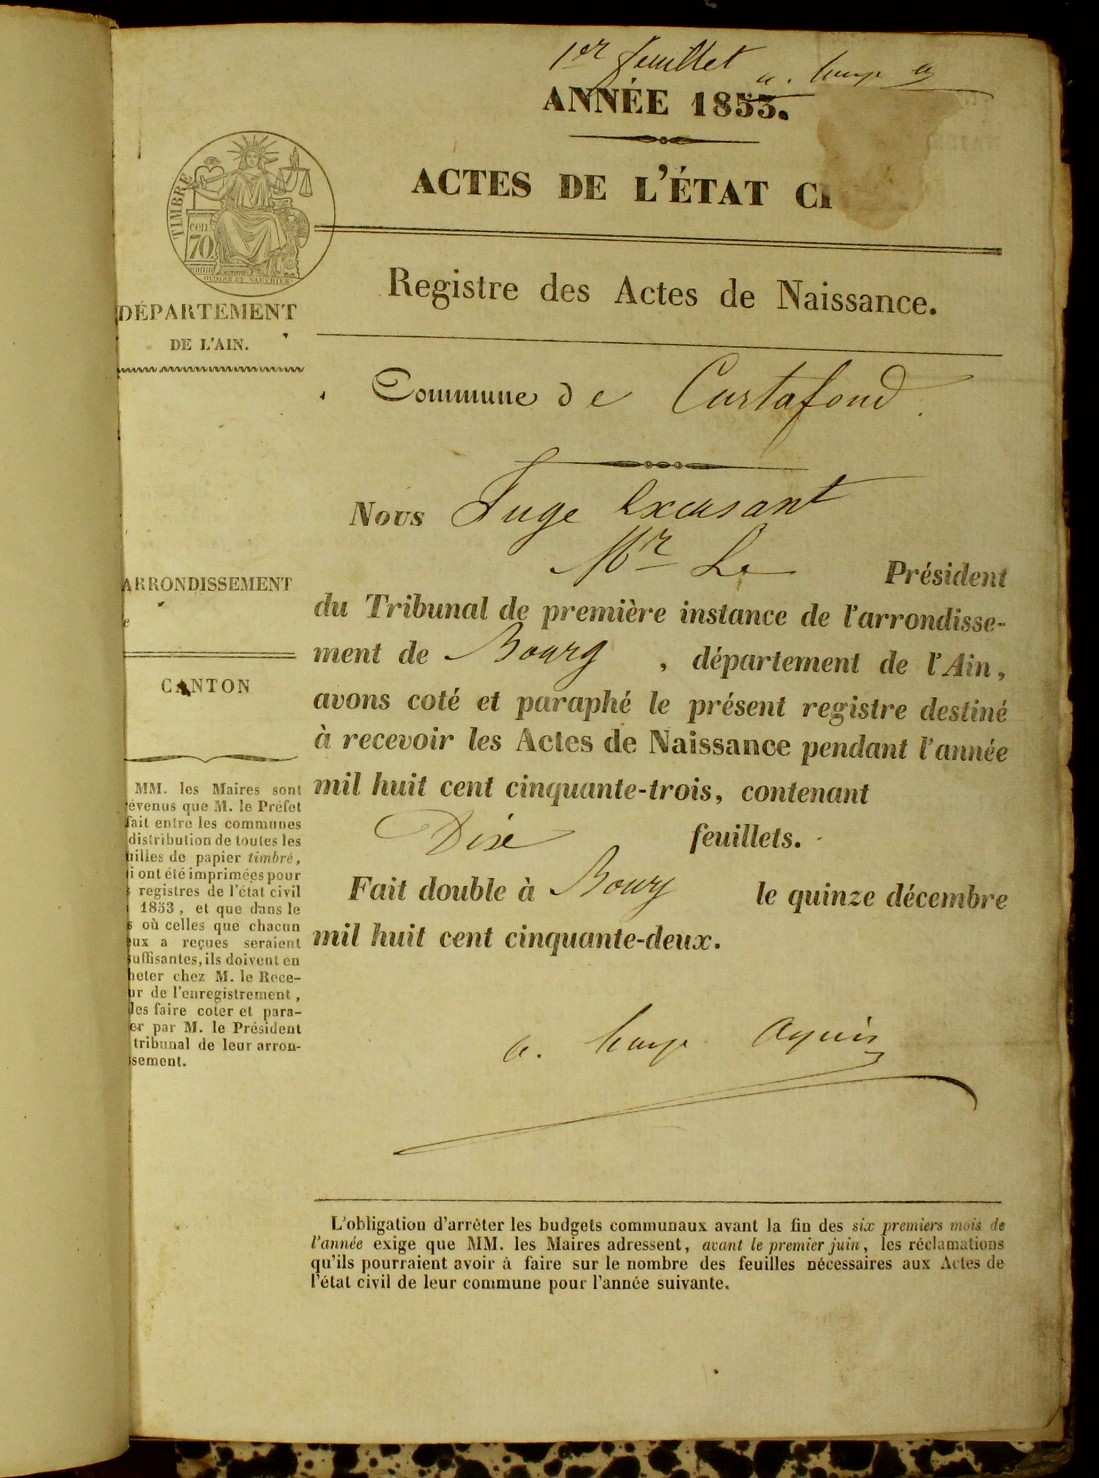 1er feuillet
ANNÉE 1853.
ACTES DE L'ÉTAT CI
TIMBRE
cen
70
DÉPARTEMENT
DE L'AIN.
Registre des Actes de Naissance.
Commune de Curtafond
Nous Juge Excusant
Mr Le Président
du Tribunal de première instance de l'arrondisse-
ment de Bourg, département de l'Ain,
avons coté et paraphé le présent registre destiné
à recevoir les Actes de Naissance pendant l'année
mil huit cent cinquante-trois, contenant
Dix feuillets.
Fait double à Bourg le quinze décembre
mil huit cent cinquante-deux.
ARRONDISSEMENT
e
CANTON
MM. les Maires sont
évenus que M. le Préfet
fait entre les communes
distribution de toutes les
uilles de papier timbré,
i ont été imprimées pour
s registres de l'état civil
1853, et que dans le
s où celles que chacun
eux a reçues seraient
suffisantes, ils doivent en
heter chez M. le Rece-
ur de l'enregistrement,
les faire coter et para-
er par M. le Président
tribunal de leur arron-
ssement.
L'obligation d'arrêter les budgets communaux avant la fin des six premiers mois de
l'année exige que MM. les Maires adressent, avant le premier juin, les réclamations
qu'ils pourraient avoir à faire sur le nombre des feuilles nécessaires aux Actes de
l'état civil de leur commune pour l'année suivante.